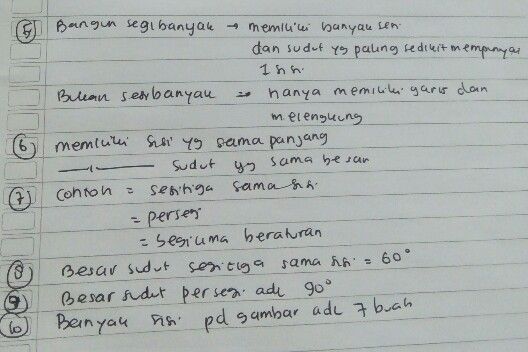 5) Bangun segibanyak → memiliki banyak sisi
dan sudut yg paling sedikit mempunyai
1 sisi.
Bukan segibanyak => hanya memiliki garis dan
melengkung
6) memiliki sisi yg sama panjang
—„— sudut yg sama besar
7) Contoh = segitiga sama sisi.
= persegi
= Segilima beraturan
8) Besar sudut segitiga sama sisi = 60°
9) Besar sudut persegi adl 90°
10) Banyak sisi pd gambar adl 7 buah